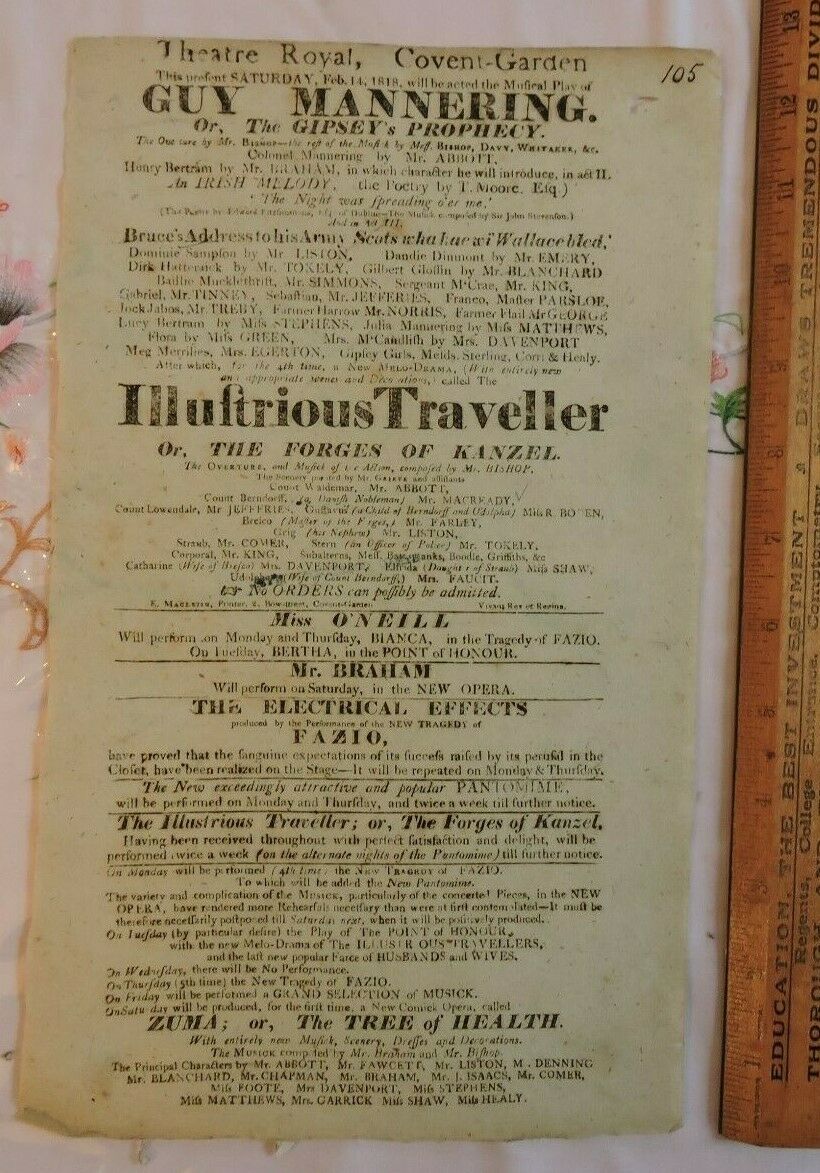 Theatre Royal, Covent-Garden
105
This preſent SATURDAY, Feb. 14, 1818, will be acted the Muſical Play of
GUY MANNERING.
Or, The GIPSEY's PROPHECY.
The Overture by Mr. BISHOP—the reſt of the Muſick by Meſſ. BISHOP, DAVY, WHITAKER, &c.
Colonel Mannering by Mr. ABBOTT,
Henry Bertram by Mr. BRAHAM, in which character he will introduce, in act II.
An IRISH MELODY, the Poetry by T. Moore, Eſq.)
' The Night was ſpreading o'er me,'
(The Poetry by Edward Fitzſimons, Eſq. of Dublin—The Muſick compoſed by Sir John Stevenſon.)
And in Act III.
Bruce's Address to his Army Scots wha hae wi' Wallace bled,'
Dominie Sampſon by Mr. LISTON, Dandie Dinmont by Mr. EMERY,
Dirk Hatteraick by Mr. TOKELY, Gilbert Gloſſin by Mr. BLANCHARD
Baillie Mucklethrift, Mr. SIMMONS, Sergeant McCrae, Mr. KING,
Gabriel, Mr. TINNEY, Sebaſtian, Mr. JEFFERIES, Franco, Maſter PARSLOE,
Jock Jabos, Mr. TREBY, Farmer Harrow Mr. NORRIS, Farmer Flail Mr GEORGE
Lucy Bertram by Miſs STEPHENS, Julia Mannering by Miſs MATTHEWS,
Flora by Miſs GREEN, Mrs. McCandliſh by Mrs. DAVENPORT
Meg Merrilies, Mrs. EGERTON, Gipſey Girls, Meſds. Sterling, Corri & Healy.
After which, for the 4th time, a New MELO-DRAMA, (With entirely new
and appropriate scenes and Decorations,) called The
Illuſtrious Traveller
Or, THE FORGES OF KANZEL.
The OVERTURE, and Muſick of the Action, compoſed by Mr. BISHOP.
The Scenery painted by Mr. GRIEVE and aſſiſtants
Count Waldemar, Mr. ABBOTT,
Count Berndorff, (a Daniſh Nobleman) Mr. MACREADY,
Count Lowendale, Mr JEFFERIES, Guſtavus (a Child of Berndorff and Udolpha) Miſs R. BODEN,
Breſco (Maſter of the Forges,) Mr. FARLEY,
Grig (his Nephew) Mr. LISTON,
Straub, Mr. COMER, Stern (an Officer of Police) Mr. TOKELY,
Corporal, Mr. KING, Subalterns, Meſſ. Banks, Boodle, Griffiths, &c
Catharine (Wife of Breſco) Mrs. DAVENPORT, Elfrida (Daughter of Straub) Miſs SHAW,
Udolpha (Wife of Count Berndorff,) Mrs. FAUCIT.
☞ No ORDERS can poſſibly be admitted.
E. MACLEISH, Printer, 2, Bow-ſtreet, Covent-Garden Vivant Rex et Regina.
Miss O'NEILL
Will perform on Monday and Thurſday, BIANCA, in the Tragedy of FAZIO.
On Tueſday, BERTHA, in the POINT of HONOUR.
Mr. BRAHAM
Will perform on Saturday, in the NEW OPERA.
THE ELECTRICAL EFFECTS
produced by the Performance of the NEW TRAGEDY of
FAZIO,
have proved that the ſanguine expectations of its ſucceſs raiſed by its peruſal in the
Cloſet, have been realized on the Stage—It will be repeated on Monday & Thurſday.
The New exceedingly attractive and popular PANTOMIME,
will be performed on Monday and Thurſday, and twice a week till further notice.
The Illustrious Traveller; or, The Forges of Kanzel,
Having been received throughout with perfect ſatisfaction and delight, will be
performed twice a week (on the alternate nights of the Pantomime) till further notice.
On Monday will be performed (4th time) the NEW TRAGEDY of FAZIO.
To which will be added the New Pantomime.
The variety and complication of the MUSICK, particularly of the concerted Pieces, in the NEW
OPERA, have rendered more Rehearſals neceſſary than were at firſt contemplated—It muſt be
therefore neceſſarily poſtponed till Saturday next, when it will be poſitively produced.
On Tueſday (by particular deſire) the Play of The POINT of HONOUR,
with the new Melo-Drama of The ILLUSTRIOUS TRAVELLERS,
and the laſt new popular Farce of HUSBANDS and WIVES.
On Wedneſday, there will be No Performance.
On Thurſday (5th time) the New Tragedy of FAZIO.
On Friday will be performed a GRAND SELECTION of MUSICK.
On Saturday will be produced, for the firſt time, a New Comick Opera, called
ZUMA; or, The TREE of HEALTH.
With entirely new Muſick, Scenery, Dreſſes and Decorations.
The MUSICK compoſed by Mr. Braham and Mr. Biſhop.
The Principal Characters by Mr. ABBOTT, Mr. FAWCETT, Mr. LISTON, M. DENNING
Mr. BLANCHARD, Mr. CHAPMAN, Mr. BRAHAM, Mr. J. ISAACS, Mr. COMER,
Miſs FOOTE, Mrs DAVENPORT, Miſs STEPHENS,
Miſs MATTHEWS, Mrs. GARRICK Miſs SHAW, Miſs HEALY.
13
12
11
10
9
8
7
6
5
4
3
2
1
EDUCATION, THE BEST INVESTMENT & DRAWS TREMENDOUS DIVID
Regents, College Entrance,
THOROUGH